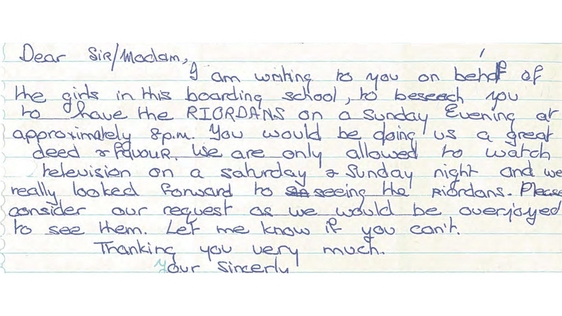 Dear Sir/Madam,
I am writing to you on behalf of
the girls in this boarding school, to beseech you
to have the RIORDANS on a Sunday Evening at
approximately 8p.m. You would be doing us a great
deed & favour. We are only allowed to watch
television on a saturday & Sunday night and we
really looked forward to seeing the Riordans. Please
consider our request as we would be overjoyed
to see them. Let me know if you can't.
Thanking you very much.
Your Sincerly